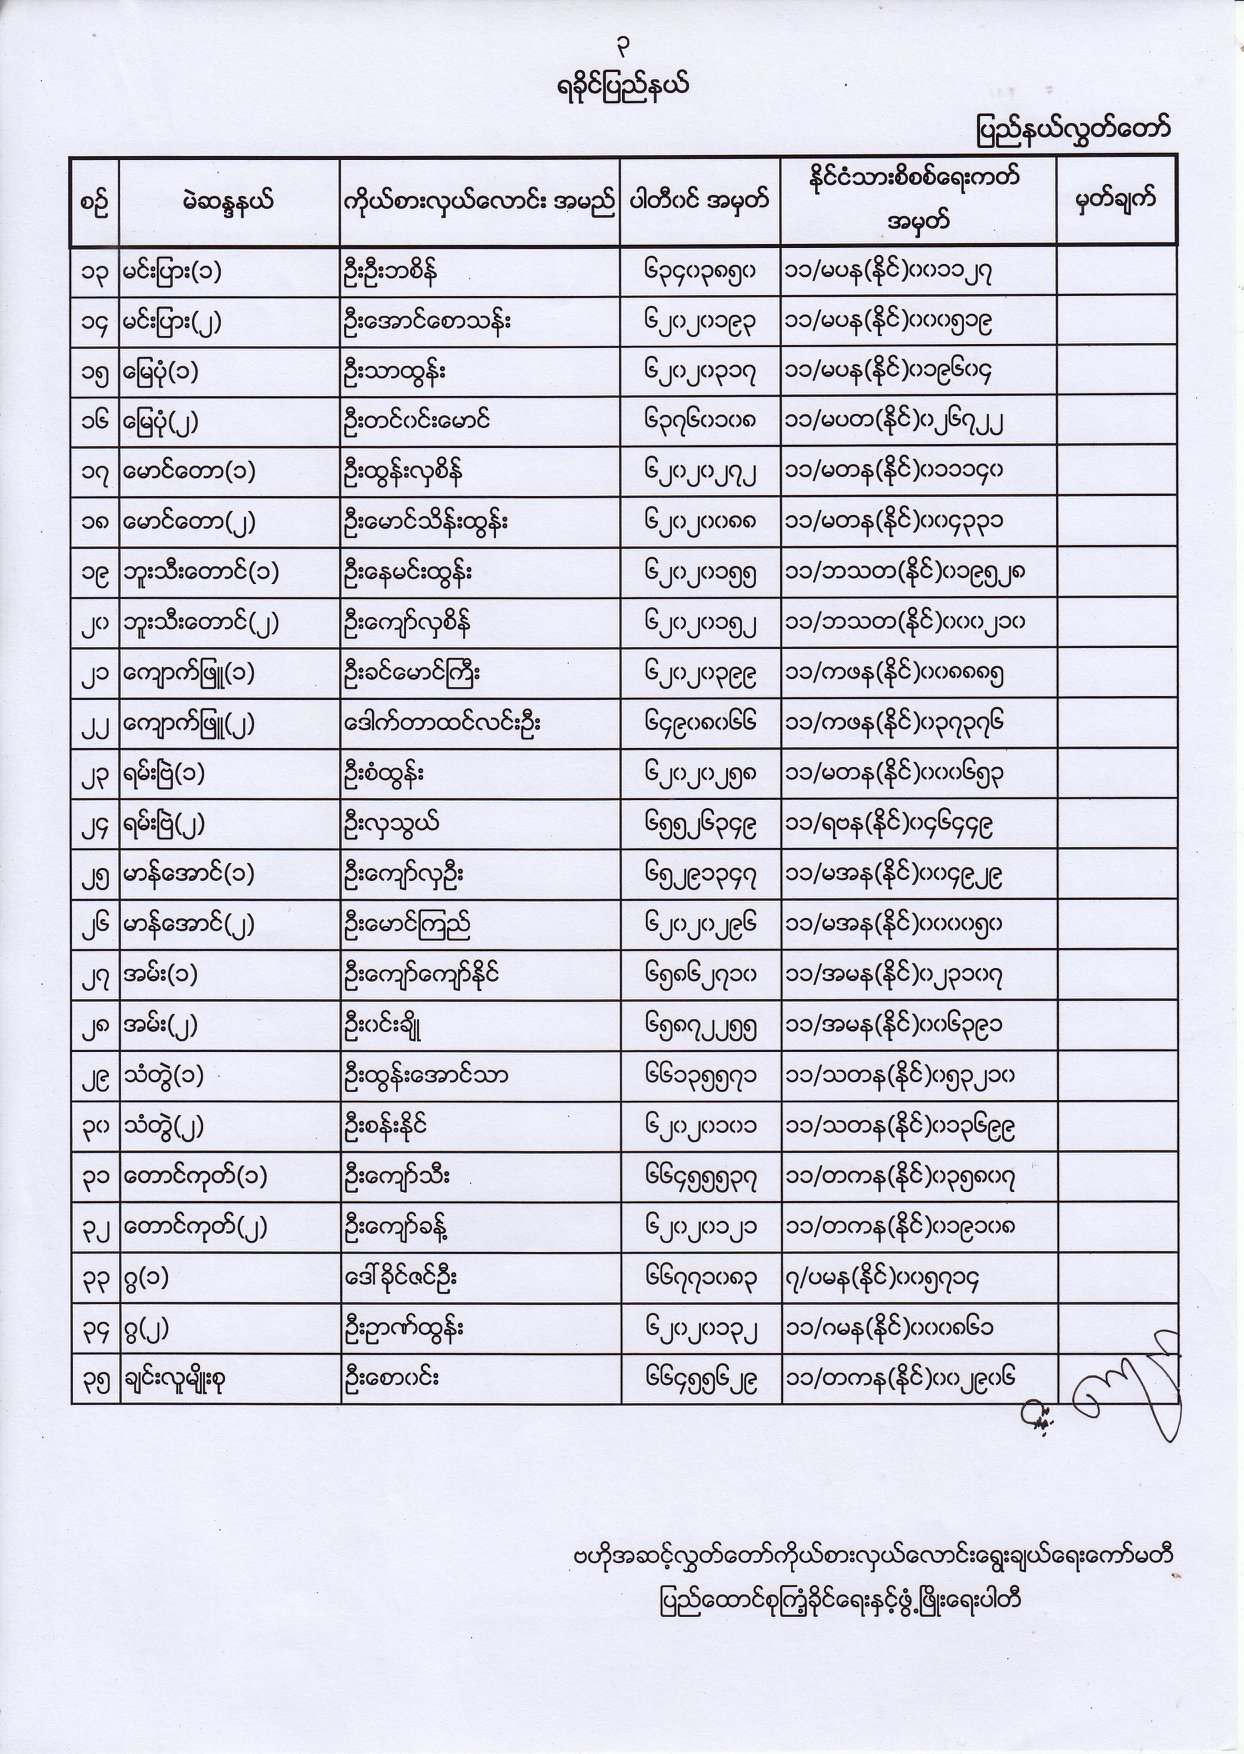 ၃
ရခိုင်ပြည်နယ်
ပြည်နယ်လွှတ်တော်
စဉ် မဲဆန္ဒနယ် ကိုယ်စားလှယ်လောင်း အမည် ပါတီဝင် အမှတ် နိုင်ငံသားစိစစ်ရေးကတ် အမှတ် မှတ်ချက်
၁၃ မင်းပြား(၁) ဦးဦးဘစိန် ၆၃၄၀၃၈၅၀ ၁၁/မပန(နိုင်)၀၀၁၁၂၇
၁၄ မင်းပြား(၂) ဦးအောင်စောသန်း ၆၂၀၂၀၁၉၃ ၁၁/မပန(နိုင်)၀၀၀၅၁၉
၁၅ မြေပုံ(၁) ဦးသာထွန်း ၆၂၀၂၀၃၁၇ ၁၁/မပန(နိုင်)၀၁၉၆၀၄
၁၆ မြေပုံ(၂) ဦးတင်ဝင်းမောင် ၆၃၇၆၀၁၀၈ ၁၁/မပတ(နိုင်)၀၂၆၇၂၂
၁၇ မောင်တော(၁) ဦးထွန်းလှစိန် ၆၂၀၂၀၂၇၂ ၁၁/မတန(နိုင်)၀၁၁၁၄၀
၁၈ မောင်တော(၂) ဦးမောင်သိန်းထွန်း ၆၂၀၂၀၀၈၈ ၁၁/မတန(နိုင်)၀၀၄၃၃၁
၁၉ ဘူးသီးတောင်(၁) ဦးနေမင်းထွန်း ၆၂၀၂၀၁၅၅ ၁၁/ဘသတ(နိုင်)၀၁၉၅၂၈
၂၀ ဘူးသီးတောင်(၂) ဦးကျော်လှစိန် ၆၂၀၂၀၁၅၂ ၁၁/ဘသတ(နိုင်)၀၀၀၂၁၀
၂၁ ကျောက်ဖြူ(၁) ဦးခင်မောင်ကြီး ၆၂၀၂၀၃၉၉ ၁၁/ကဖန(နိုင်)၀၀၈၈၈၅
၂၂ ကျောက်ဖြူ(၂) ဒေါက်တာထင်လင်းဦး ၆၄၉၀၈၀၆၆ ၁၁/ကဖန(နိုင်)၀၃၇၃၇၆
၂၃ ရမ်းဗြဲ(၁) ဦးစံထွန်း ၆၂၀၂၀၂၅၈ ၁၁/မတန(နိုင်)၀၀၀၆၅၃
၂၄ ရမ်းဗြဲ(၂) ဦးလှသွယ် ၆၅၅၂၆၃၄၉ ၁၁/ရဗန(နိုင်)၀၄၆၄၄၉
၂၅ မာန်အောင်(၁) ဦးကျော်လှဦး ၆၅၂၉၁၃၄၇ ၁၁/မအန(နိုင်)၀၀၄၉၂၉
၂၆ မာန်အောင်(၂) ဦးမောင်ကြည် ၆၂၀၂၀၂၉၆ ၁၁/မအန(နိုင်)၀၀၀၀၅၀
၂၇ အမ်း(၁) ဦးကျော်ကျော်နိုင် ၆၅၈၆၂၇၁၀ ၁၁/အမန(နိုင်)၀၂၃၁၀၇
၂၈ အမ်း(၂) ဦးဝင်းချို ၆၅၈၇၂၂၅၅ ၁၁/အမန(နိုင်)၀၀၆၃၉၁
၂၉ သံတွဲ(၁) ဦးထွန်းအောင်သာ ၆၆၁၃၅၅၇၁ ၁၁/သတန(နိုင်)၀၅၃၂၁၀
၃၀ သံတွဲ(၂) ဦးစန်းနိုင် ၆၂၀၂၀၁၀၁ ၁၁/သတန(နိုင်)၀၁၃၆၉၉
၃၁ တောင်ကုတ်(၁) ဦးကျော်သီး ၆၆၄၅၅၅၃၇ ၁၁/တကန(နိုင်)၀၃၅၈၀၇
၃၂ တောင်ကုတ်(၂) ဦးကျော်ခန့် ၆၂၀၂၀၁၂၁ ၁၁/တကန(နိုင်)၀၁၉၁၀၈
၃၃ ဂွ(၁) ဒေါ်ခိုင်ဇင်ဦး ၆၆၇၇၁၀၈၃ ၇/ပမန(နိုင်)၀၀၅၇၁၄
၃၄ ဂွ(၂) ဦးဉာဏ်ထွန်း ၆၂၀၂၀၁၃၂ ၁၁/ဂမန(နိုင်)၀၀၀၈၆၁
၃၅ ချင်းလူမျိုးစု ဦးစောဝင်း ၆၆၄၅၅၆၂၉ ၁၁/တကန(နိုင်)၀၀၂၉၀၆
ဗဟိုအဆင့်လွှတ်တော်ကိုယ်စားလှယ်လောင်းရွေးချယ်ရေးကော်မတီ
ပြည်ထောင်စုကြံ့ခိုင်ရေးနှင့်ဖွံ့ဖြိုးရေးပါတီ